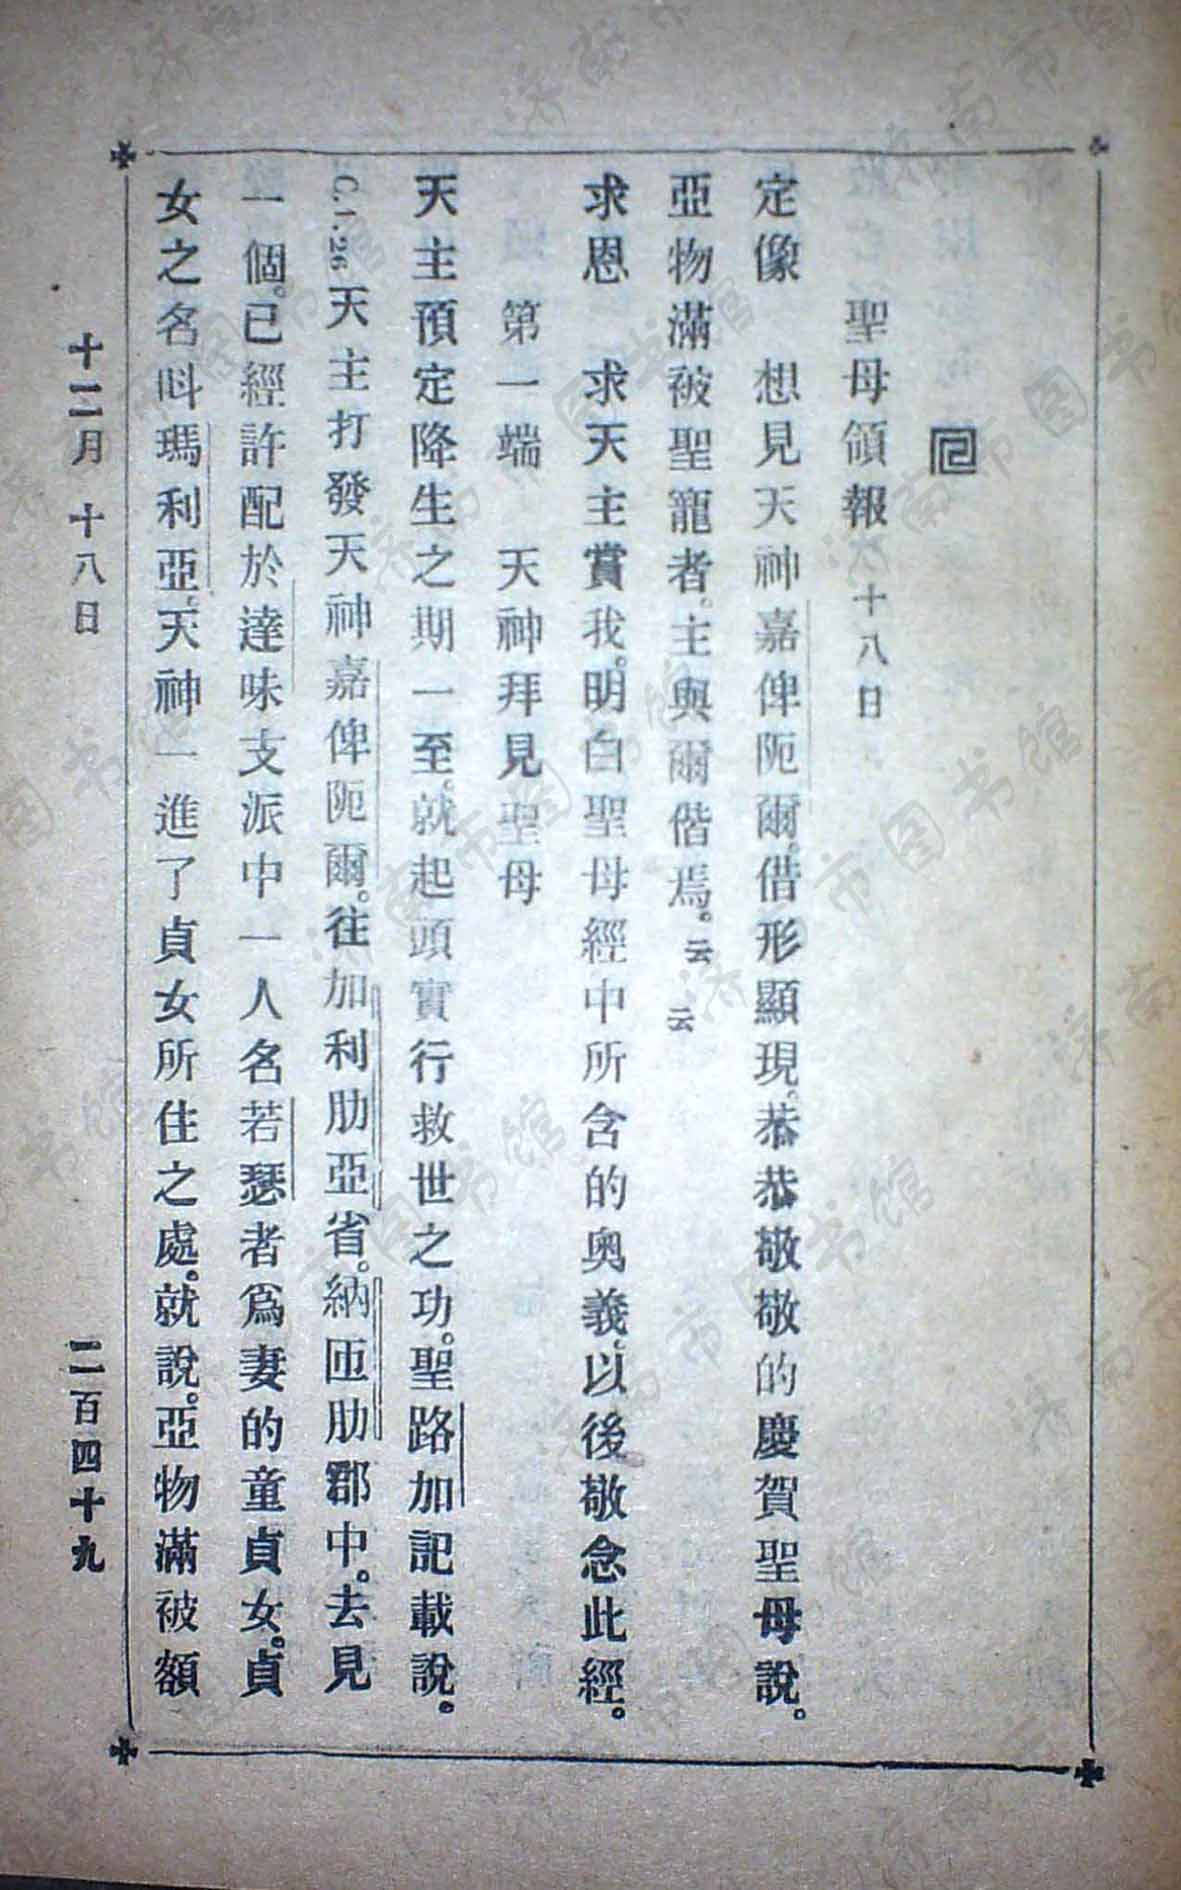 聖母領報 十八日
定像 想見天神嘉俾阨爾。借形顯現。恭恭敬敬的慶賀聖母說。
亞物滿被聖寵者。主與爾偕焉。云云
求恩 求天主賞我。明白聖母經中所含的奧義。以後敬念此經。
第一端 天神拜見聖母
天主預定降生之期一至。就起頭實行救世之功。聖路加記載說。
C. 1. 26 天主打發天神嘉俾阨爾。往加利肋亞省。納匝肋郡中。去見
一個。已經許配於達味支派中一人名若瑟者爲妻的童貞女。貞
女之名呌瑪利亞。天神一進了貞女所住之處。就說。亞物滿被額
十二月 十八日 二百四十九
济南市图书馆